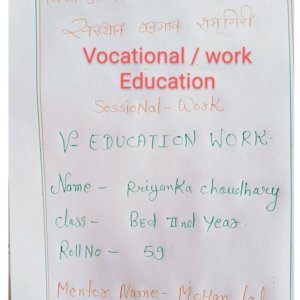 Vocational / work
Education
Sessional - Work
V- EDUCATION WORK.
Name - Priyanka choudhary
class - Bed IInd Year.
Roll No - 59
Mentor Name- Mohan Lal